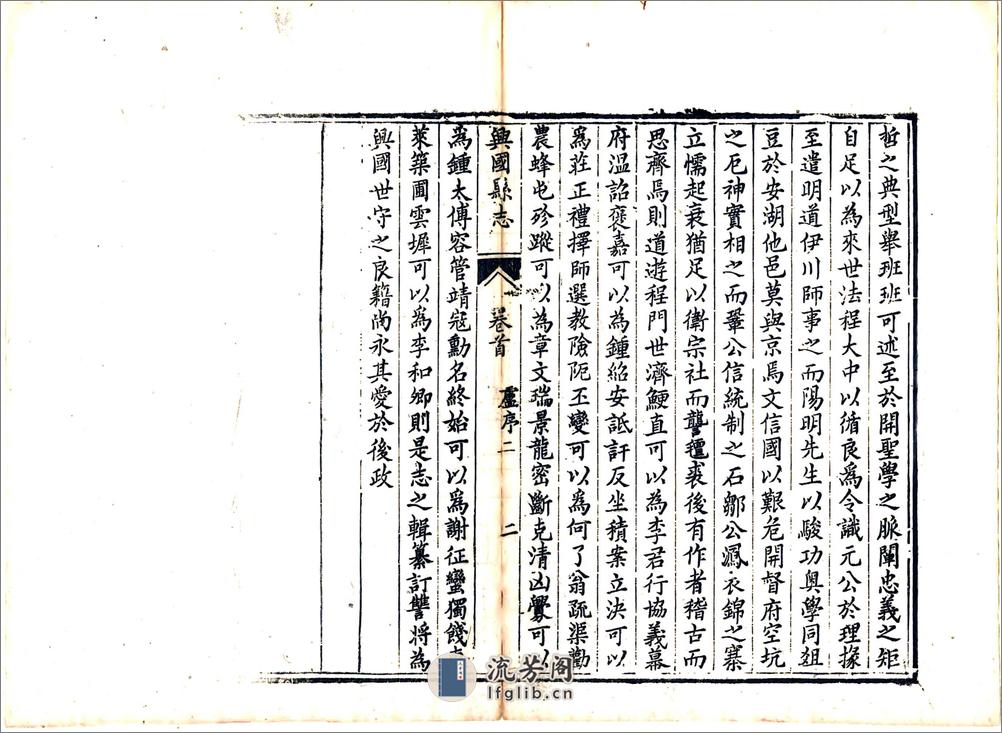 哲之典型舉班班可述至於開聖學之脈闡忠義之矩
自足以為來世法程大中以循良爲令識元公於理掾
至遣明道伊川師事之而陽明先生以駿功奥學同俎
豆於安湖他邑莫與京焉文信國以艱危開督府空坑
之厄神實相之而鞏公信統制之石鄒公㵯衣錦之寨
立懦起衰猶足以衛宗社而讋氊裘後有作者稽古而
思齊焉則道遊程門世濟鯁直可以為李君行協義幕
府溫詔褒嘉可以為鍾紹安詆訐反坐積案立決可以
爲莊正禮擇師選教險阨丕變可以為何了翁疏渠勸
農蜂屯殄蹤可以為章文瑞景龍密斷克清凶釁可以
興國縣志 卷首 盧序二 二
爲鍾太傅容管靖冦勳名終始可以爲謝征蠻獨餞
萊築圃雲墀可以爲李和卿則是志之輯纂訂讐將為
興國世守之良籍尚永其愛於後政
流芳阁
lfglib.cn